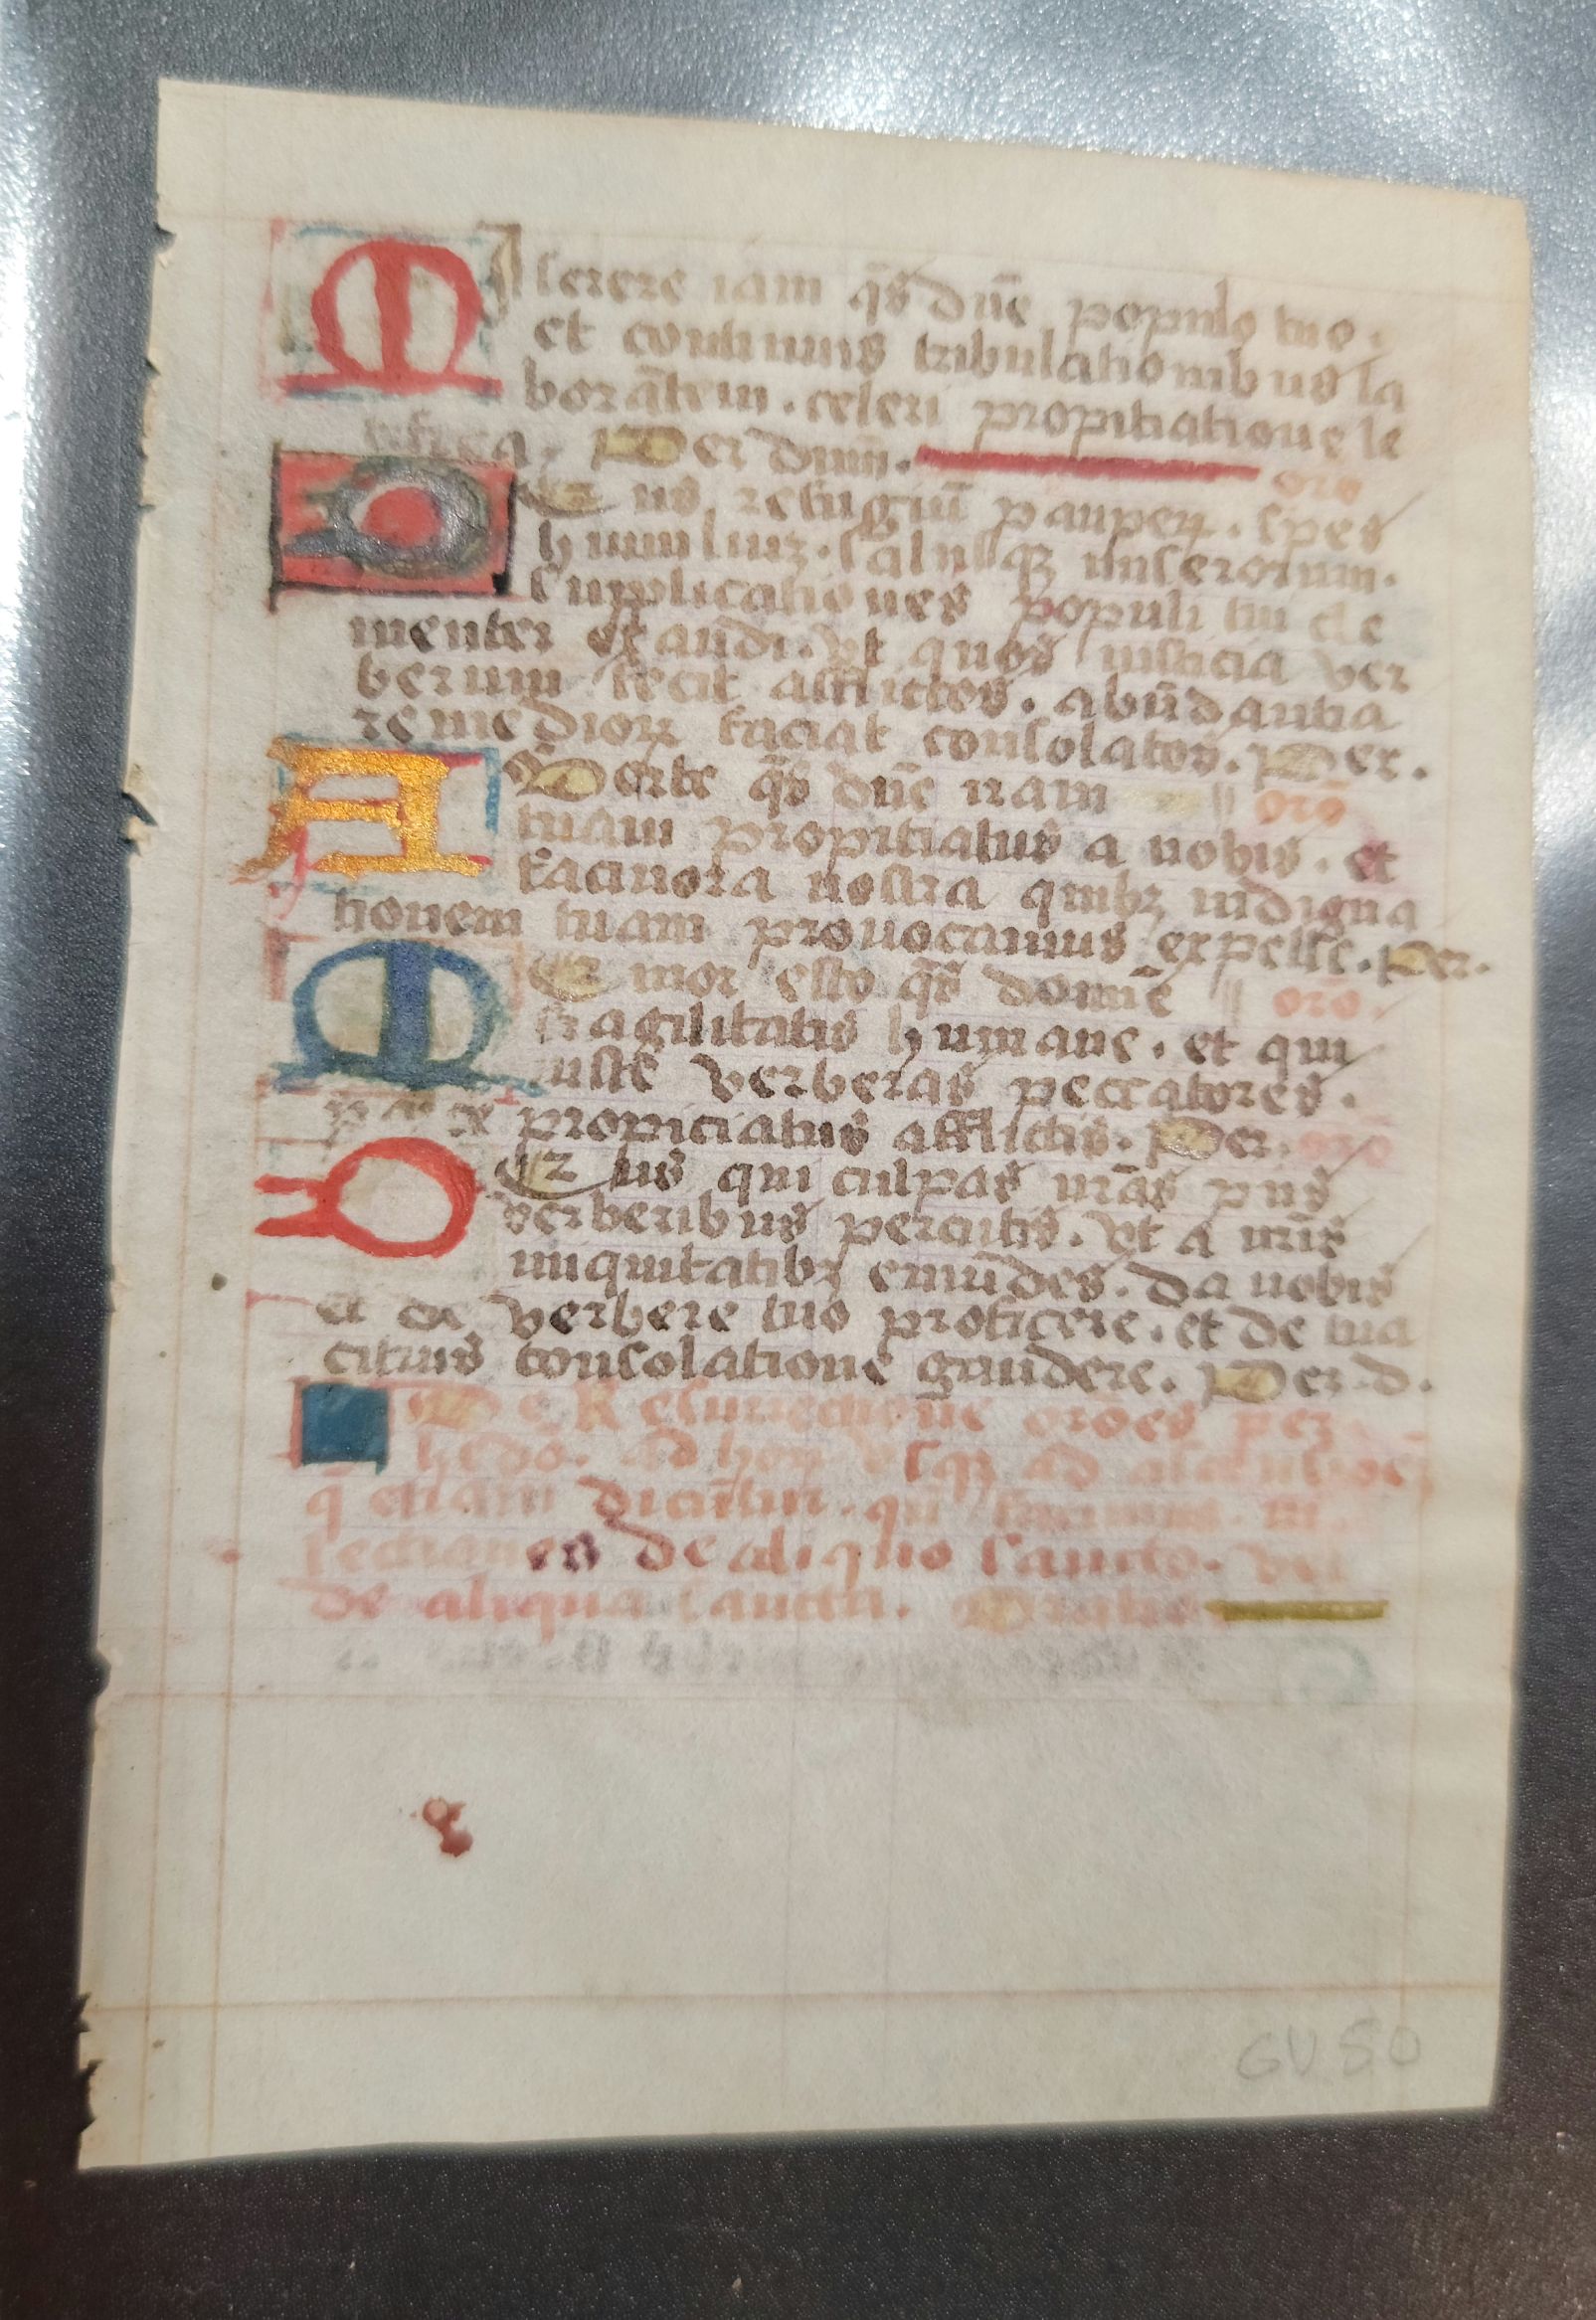 MIserere iam q̄s dn̄e populo tuo.
et continuis tribulationibus la
borātem. celeri propitiatione le
tifica. Per dnm̄.
oro
DEus refugiū pauperꝝ. spes
humiliuꝫ. salusqꝫ miserorum.
supplicationes populi tui cle
menter exaudi. vt quos iusticia ver
berum fecit afflictos. abūdantia
remediorꝝ faciat consolatos. Per.
AVerte q̄s dn̄e iram
orō
tuam propitiatus a nobis. et
facinora nostra quibꝫ indigna
tionem tuam prouocamus expelle. Per.
MEmor esto q̄s domīe
orō.
fragilitatis humane. et qui
iuste verberas peccatores.
parce propiciatus afflictis. Per.
orō
DEus qui culpas nr̄as piis
verberibus percutis. vt a nr̄is
iniquitatibꝫ emūdes. da nobis
et de verbere tuo proficere. et de tua
citius consolatione gaudere. Per d.
De Resurrectione orōes
ad hoꝝ vsqꝫ ad
q̄ etiam dicūtur. qn̄
lectiones de aliquo sancto. vel
de aliqua sancta.
GV 50